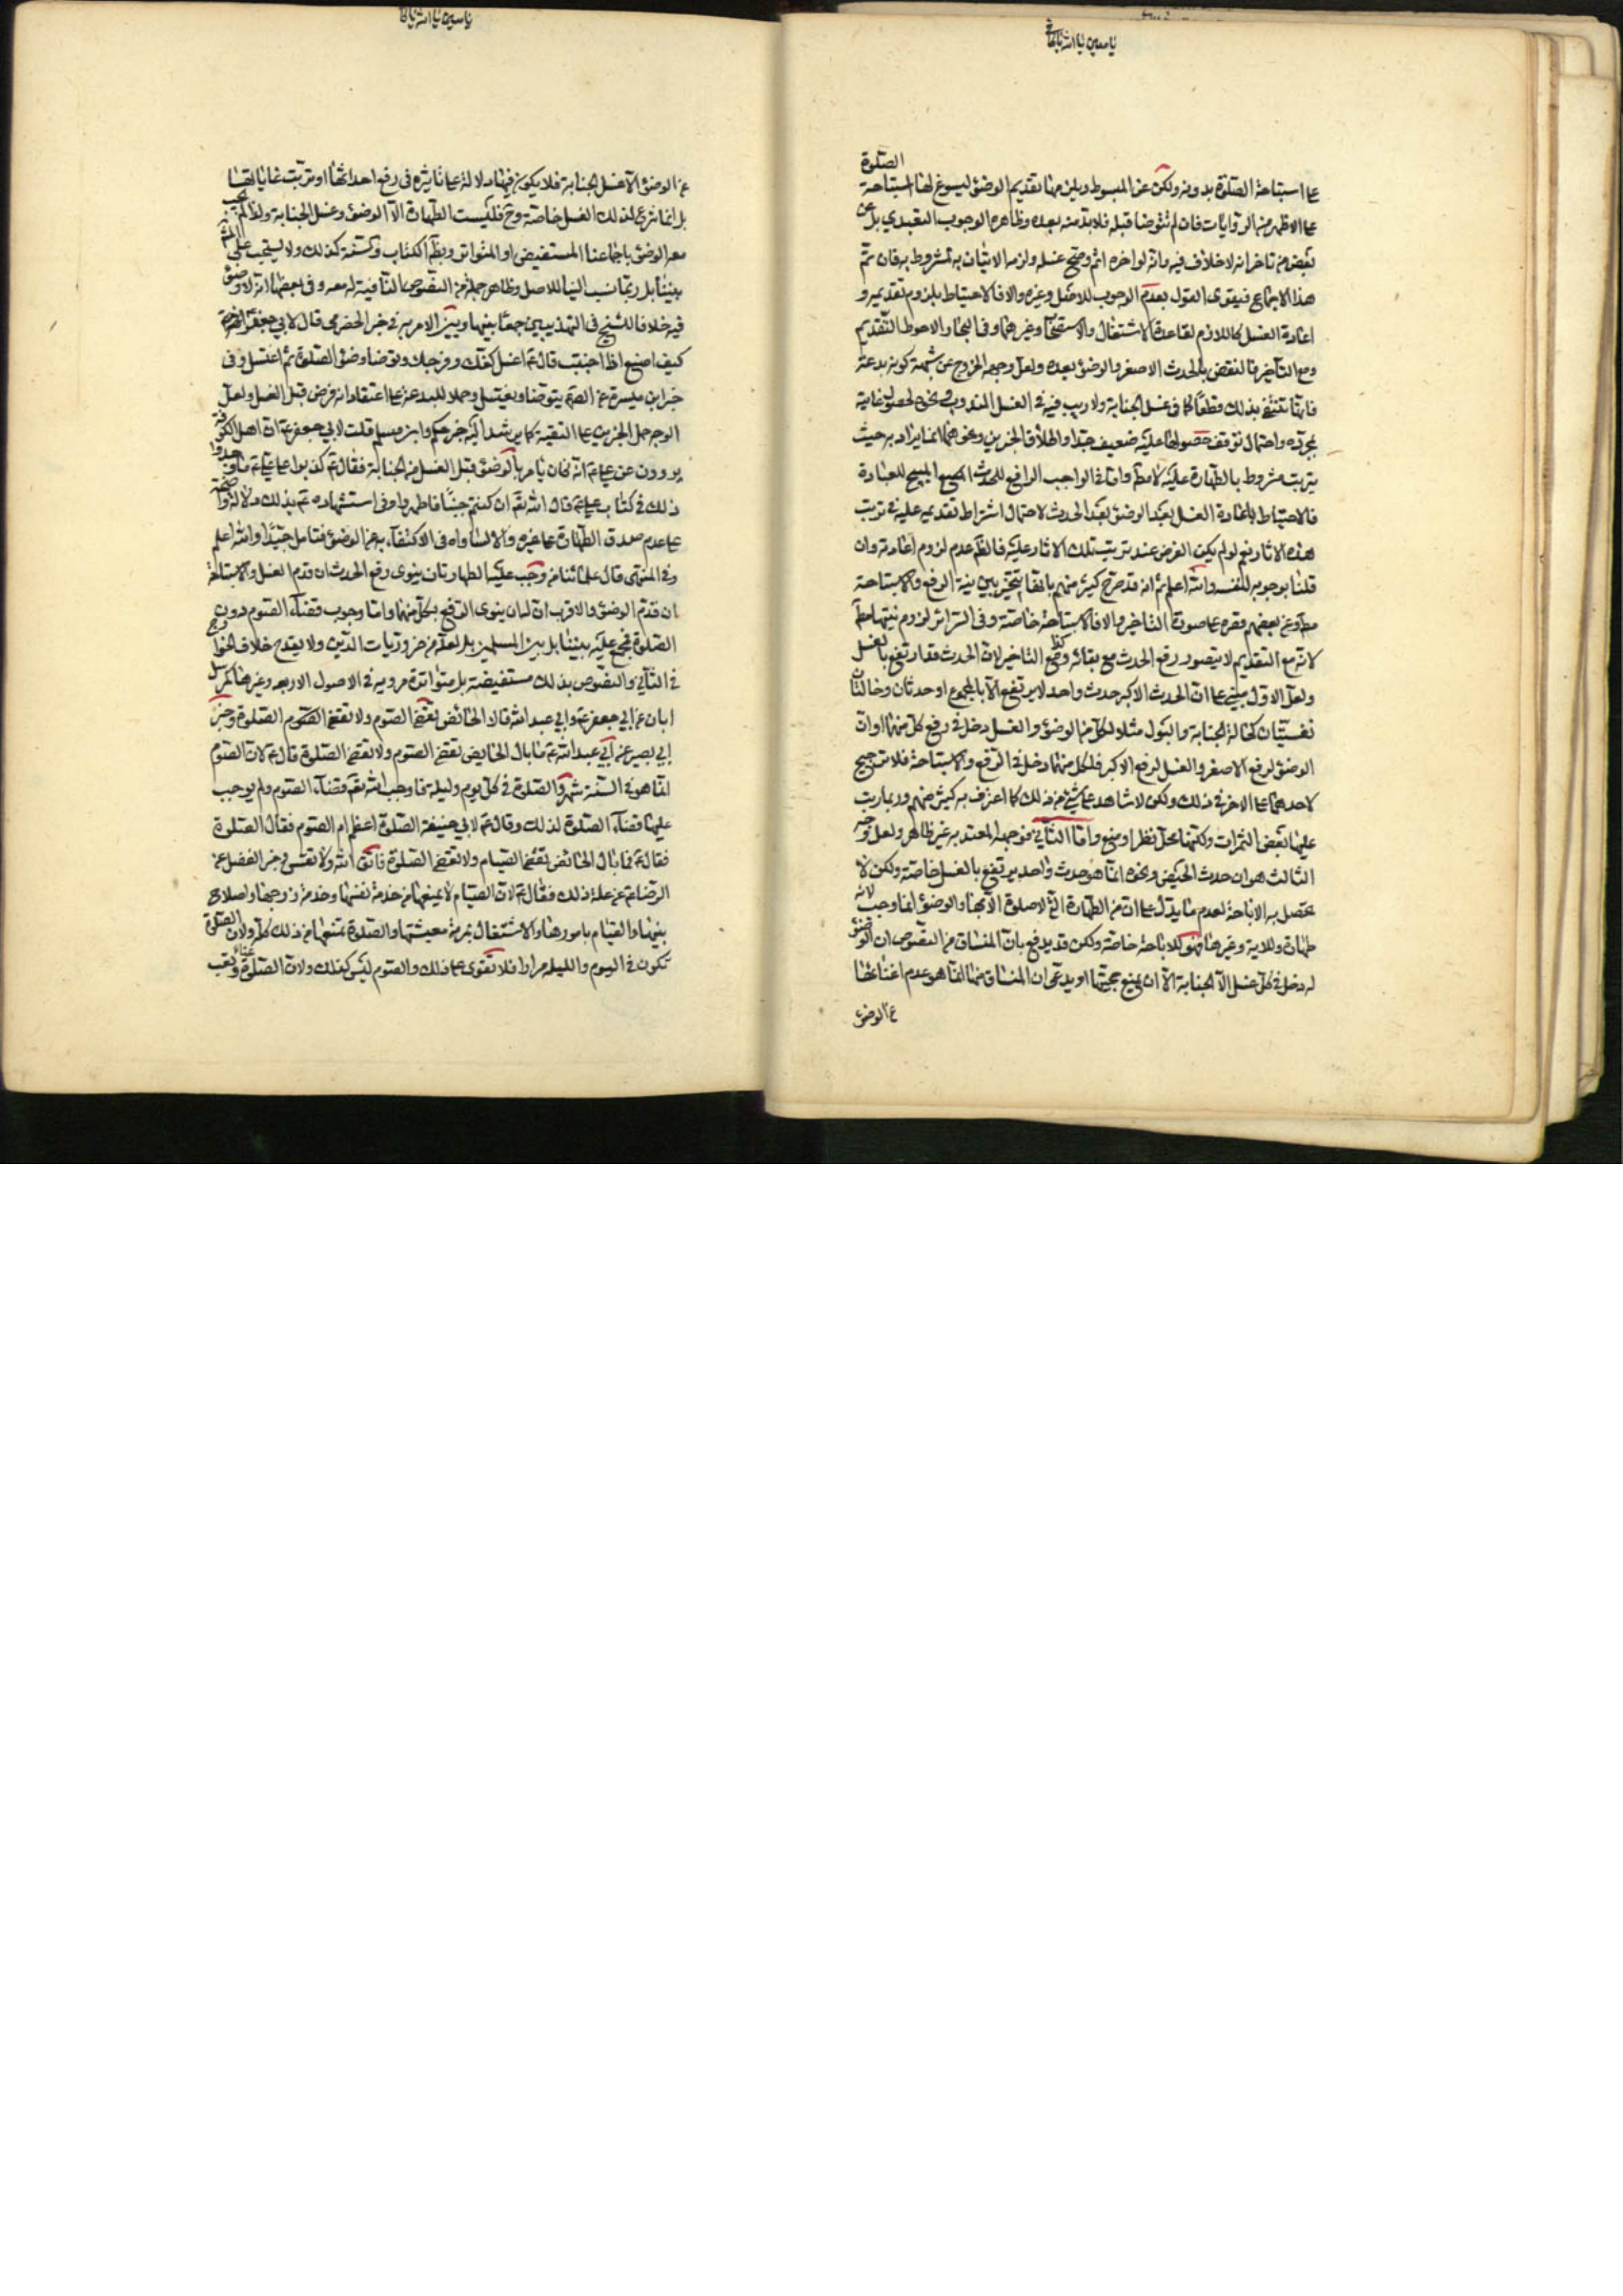 الصلوة
على استباحة الصلوة بدونه ولكن عن المبسوط تقديم الوضوء ليسوغ لها استباحة
على الاظهر من الروايات فان لم تتوضا قبله فلابد منه بعده وظاهره الوجوب التعبدي بل عن
بعض من تاخر انه لا خلاف فيه وانه لو اخره اثم وصح غسله ولزمه الاتيان به لمشروط به فان تم
هذا الاجماع فيقوى القول بعدم الوجوب للاصل وغيره والا فالاحتياط يلزم تقديمه و
اعادة الغسل كاللازم لقاعدة الاشتغال والاستصحاب وغيرهما وفي البحار والاحوط التقديم
ومع التاخير فالنقض بالحدث الاصغر والوضوء بعده ولعل وجهه الخروج عن شبهة كونه بدعة
فانها تنتفي بذلك قطعا كما في غسل الجنابة ولا ريب فيه في الغسل المندوب لحصول غايته
بمجرده واحتمال توقف حصولها عليه ضعيف جدا واطلاق الخبرين ونحوهما انما يراد به حيث
يترتب مشروط بالطهارة عليه لا مط واما في الواجب الرافع للحدث المبيح للعبادة
فالاحتياط باعادة الغسل بعد الوضوء بعد الحدث لاحتمال اشتراط تقديمه عليه في ترتب
هذه الاثار نعم لو لم يكن الغرض عند ترتيب تلك الاثار عليه فالظ عدم لزوم اعادته وان
قلنا بوجوبه لنفسه والله اعلم ثم انه قد صرح كثير منهم بانها تتخير بين نية الرفع والاستباحة
مط وعن بعضهم قصره على صورة التاخير والا فالاستباحة خاصة وفي السرائر لزوم نيتها مط
لانه مع التقديم لا يتصور رفع الحدث مع بقائه وكذا مع التاخير لان الحدث قد ارتفع بالغسل
ولعل الاول مبني على ان الحدث الاكبر حدث واحد لا يرتفع الا بالمجموع او حدثان وحالتان
نفسيتان كحالة الجنابة والبول مثلا لكل من الوضوء والغسل دخل في رفع كل منهما او ان
الوضوء لرفع الاصغر والغسل لرفع الاكبر فلكل منهما دخل في الرفع والاستباحة فلا ترجيح
لاحدهما على الاخر في ذلك ولكن لا شاهد على شيء من ذلك كما اعترف به كثير منهم وربما رتب
عليها بعض الثمرات ولكنها محل نظر او منع واما الثاني فوجهه المعتد به غير ظاهر ولعل وجه
الثالث هو ان حدث الحيض ونحوه انما هو حدث واحد يرتفع بالغسل خاصة ولكن لا
تحصل به الاباحة لعدم ما يدل على ان من الطهارة التي لا صلوة الا بها والوضوء انما وجب لانه
طهارة وللاية وغيرها فهو للاباحة خاصة ولكن قد يدفع بان المنساق من النصوص ان الوضوء
له دخل في كل غسل الا الجنابة الا ان يمنع حجيتها او يدعى ان المنساق منها انما هو عدم اغنائها
عن الوضوء
عن الوضوء الا غسل الجنابة فلا يكون فيها دلالة على تاثيره في رفع احداثها او ترتب غاياتها
بل انما شرع لذلك الغسل خاصة وح فليست الطهارة الا الوضوء وغسل الجنابة ولذا لم يجب
معه الوضوء باجماعنا المستفيض او المتواتر وبظم الكتاب والسنة كذلك ولا يستحب على المش
بيننا بل ربما نسب الينا للاصل وظاهر جملة من النصوص النافية له معه وفي بعضها انه لا وضوء
فيه خلافا للشيخ في التهذيبين جمعا بينها وبين الامر به في خبر الحضرمي قال لابي جعفر
كيف اصنع اذا اجنبت قال ع اغسل كفك وفرجك وتوضا وضوء الصلوة ثم اغتسل وفي
خبر ابن ميسرة عن الصم يتوضا ويغتسل وحملا للبدعة على اعتقاد انه فرض قبل الغسل ولعل
الوجه حمل الخبرين على التقية كما يرشد اليه خبر حكم وابن مسلم قلت لابي جعفر ع ان اهل الكوفة
يروون عن علي ع انه كان يامر بالوضوء قبل الغسل من الجنابة فقال ع كذبوا على علي ع ما وجدوا
ذلك في كتاب علي ع قال الله تعم ان كنتم جنبا فاطهروا وفي استشهاده ع بذلك دلالة واضحة
على عدم صدق الطهارة على غيره والا لساواه في الاكتفاء به عن الوضوء فتامل جيدا والله اعلم
وفي المنتهى قال علمائنا من وجب عليه الطهارتان ينوي رفع الحدث ان قدم الغسل والاستباحة
ان قدم الوضوء والاقرب ان له ان ينوي الرفع بكل منهما واما وجوب قضاء الصوم دون
الصلوة فمجمع عليه بيننا بل بين المسلمين بل لعله من ضروريات الدين ولا يقدح خلاف
في الثاني والنصوص بذلك مستفيضة بل متواترة مروية في الاصول الاربعه وغيرها كمرسل
ابان عن ابي جعفر ع وابي عبد الله قالا الحائض تقضي الصوم ولا تقضي الصلوة وخبر
ابي بصير عن ابي عبد الله ع ما بال الحايض تقضي الصوم ولا تقضي الصلوة قال ع لان الصوم
انما هو في السنة شهر والصلوة في كل يوم وليلة فاوجب الله تعم قضاء الصوم ولم يوجب
عليها قضاء الصلوة لذلك وقال ع لابي حنيفة الصلوة اعظم ام الصوم فقال الصلوة
فقال ع فما بال الحائض تقضي الصيام ولا تقضي الصلوة فاتق الله ولا تقس وفي خبر الفضل عن
الرضا ع عن علة ذلك فقال ع لان الصيام لا يمنعها من خدمة نفسها وخدمة زوجها واصلاح
بيتها والقيام بامورها والاشتغال بمرمة معيشتها والصلوة تمنعها من ذلك كله ولان الصلوة
تكون في اليوم والليله مرارا فلا تقوى على ذلك والصوم ليس كذلك ولان الصلوة فيها عناء وتعب